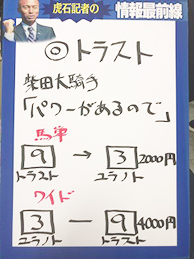 虎石記者の
情報最前線
◎トラスト
柴田大騎手
「パワーがあるので」
馬単
9 → 3 2000円
トラスト ユラノト
ワイド
3 — 9 4000円
ユラノト トラスト